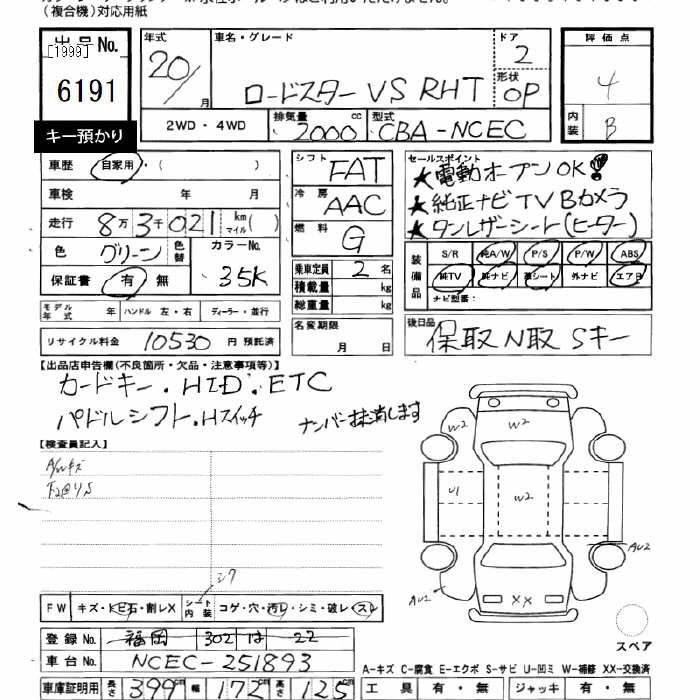 (複合機)対応用紙
出品No.
[1999]
6191
キー預かり
年式
20/
月
車名・グレード
ロードスター VS RHT
ドア
2
形状
OP
評価点
4
内装
B
2WD・4WD
排気量
2000
cc
型式
CBA-NCEC
車歴
自家用・( )
車検 年 月
走行 8万3千021 km マイル ( )
色 グリーン 色替 カラーNo. 35K
保証書 有・無
モデル年式 年 ハンドル 左・右 ディーラー・並行
リサイクル料金 10530 円 預託済
シフト FAT
冷房 AAC
燃料 G
乗車定員 2 名
積載量 kg
総重量 kg
名変期限
月 日
セールスポイント
★電動オープンOK!
★純正ナビTV Bカメラ
★タンレザーシート(ヒーター)
装備品
S/R 純A/W P/S P/W ABS
純TV 純ナビ 革シート 外ナビ エアB
ナビ型番:
後日品
保取N取 Sキー
【出品店申告欄(不良箇所・欠品・注意事項等)】
カードキー.HID.ETC
パドルシフト.Hスイッチ
ナンバー抹消します
【検査員記入】
A/Wキズ
シワ
FW キズ・トビ石・割レX シート内装 コゲ・穴・汚レ・シミ・破レ・スレ
登録No. 福岡 302 は 22
車台No. NCEC-251893
車庫証明用 長さ 399 幅 172 高さ 125
W2
W2
U1
W2
AU2
AU2
XX
スペア
A-キズ C-腐食 E-エクボ S-サビ U-凹ミ W-補修 XX-交換済
工具 有・無 ジャッキ 有・無